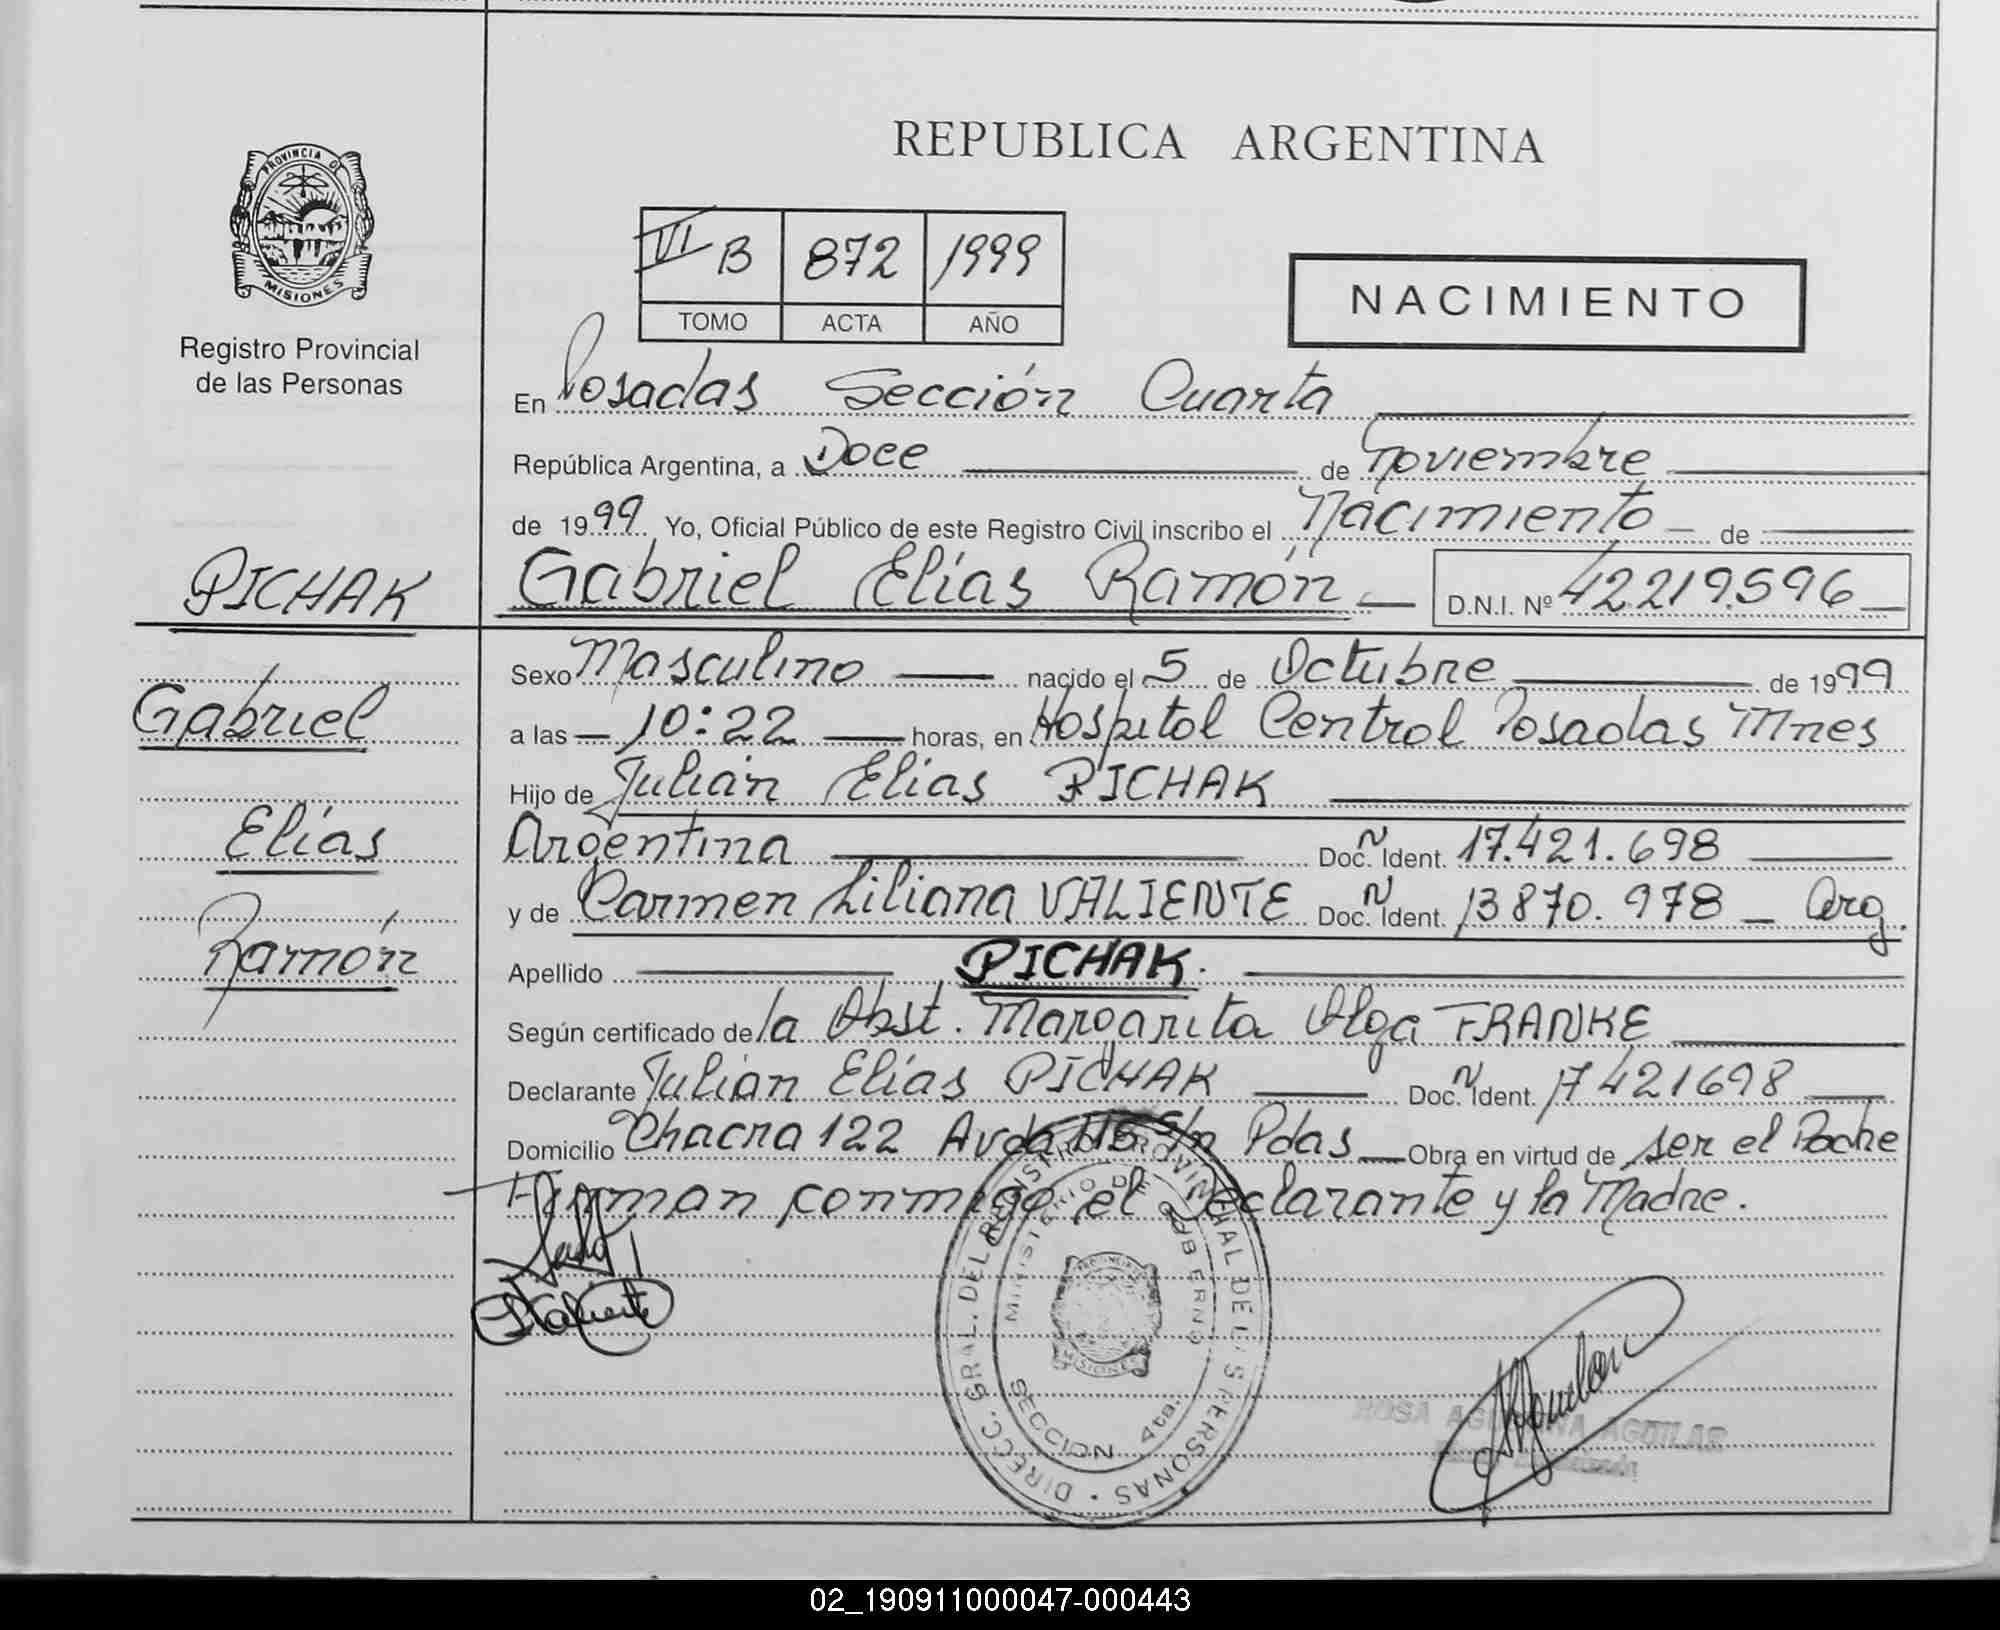 PROVINCIA DE
MISIONES
Registro Provincial
de las Personas
REPUBLICA ARGENTINA
VI B 872 1999
TOMO ACTA AÑO
NACIMIENTO
En Posadas Sección Cuarta
República Argentina, a Doce de Noviembre
de 1999 Yo, Oficial Público de este Registro Civil inscribo el Nacimiento de
PICHAK
Gabriel Elías Ramón D.N.I. Nº 42219596
Gabriel
Elías
Ramón
Sexo Masculino nacido el 5 de Octubre de 1999
a las 10:22 horas, en Hospital Central Posadas Mnes
Hijo de Julián Elías PICHAK
Argentina Doc. N Ident. 17.421.698
y de Carmen Liliana VALIENTE Doc. N Ident. 13870.978 Arg.
Apellido PICHAK.
Según certificado de la Obst. Margarita Olga FRANKE
Declarante Julián Elías PICHAK Doc. N Ident. 17421698
Domicilio Chacra 122 Avda 115 s/n Pdas Obra en virtud de ser el Padre
Firman conmigo el Declarante y la Madre.
DIRECC. GRAL. DEL REGISTRO PROVINCIAL DE LAS PERSONAS
MINISTERIO DE GOBIERNO
SECCION 4ta.
PROVINCIA DE
MISIONES
ROSA AGUILAR
02_190911000047-000443